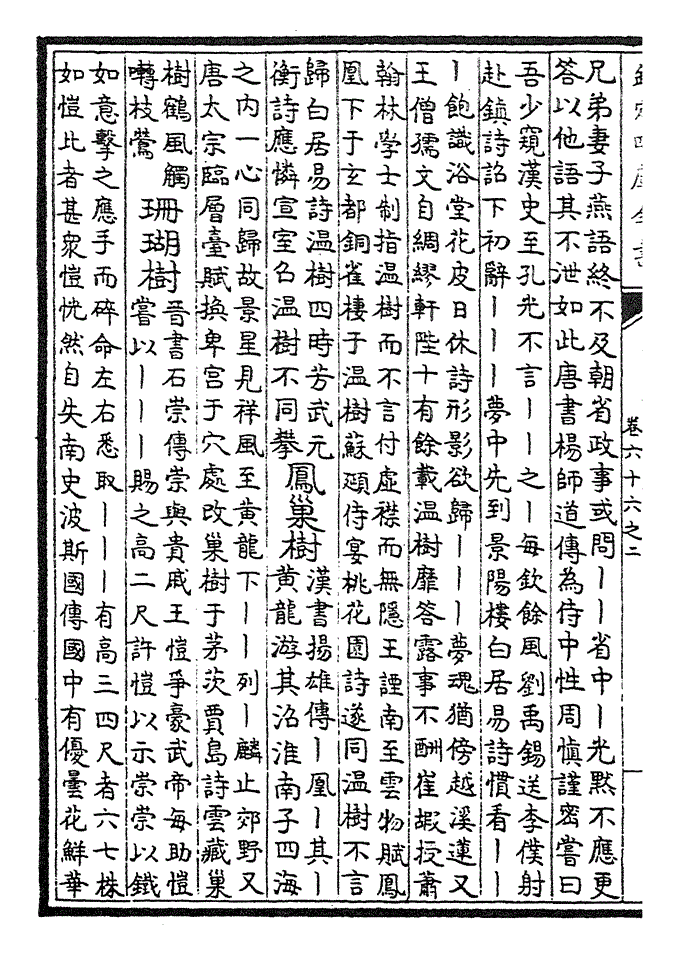 欽定四庫全書
卷六十六之二
兄弟妻子燕語終不及朝省政事或問丨丨省中丨光黙不應更
答以他語其不泄如此唐書楊師道傳為侍中性周慎謹密嘗曰
吾少窺漢史至孔光不言丨丨之丨每欽餘風劉禹錫送李僕射
赴鎮詩詔下初辭丨丨丨夢中先到景陽樓白居易詩慣看丨丨
丨飽識浴堂花皮日休詩形影欲歸丨丨丨夢魂猶傍越溪蓮又
王僧孺文自綢繆軒陛十有餘載温樹靡答露事不酬崔嘏授蕭
翰林學士制指温樹而不言付虛襟而無隱王諲南至雲物賦鳳
凰下于玄都銅雀棲于温樹蘇頲侍宴桃花園詩遂同温樹不言
歸白居易詩温樹四時芳武元
衡詩應憐宣室召温樹不同攀
鳳巢樹
漢書揚雄傳丨凰丨其丨
黄龍游其沼淮南子四海
之内一心同歸故景星見祥風至黄龍下丨丨列丨麟止郊野又
唐太宗臨層臺賦換卑宫于穴處改巢樹于茅茨賈島詩雲藏巢
樹鶴風觸
囀枝鶯
珊瑚樹
晉書石崇傳崇與貴戚王愷爭豪武帝每助愷
嘗以丨丨丨賜之高二尺許愷以示崇崇以鐵
如意擊之應手而碎命左右悉取丨丨丨有高三四尺者六七株
如愷比者甚衆愷恍然自失南史波斯國傳國中有優曇花鮮華